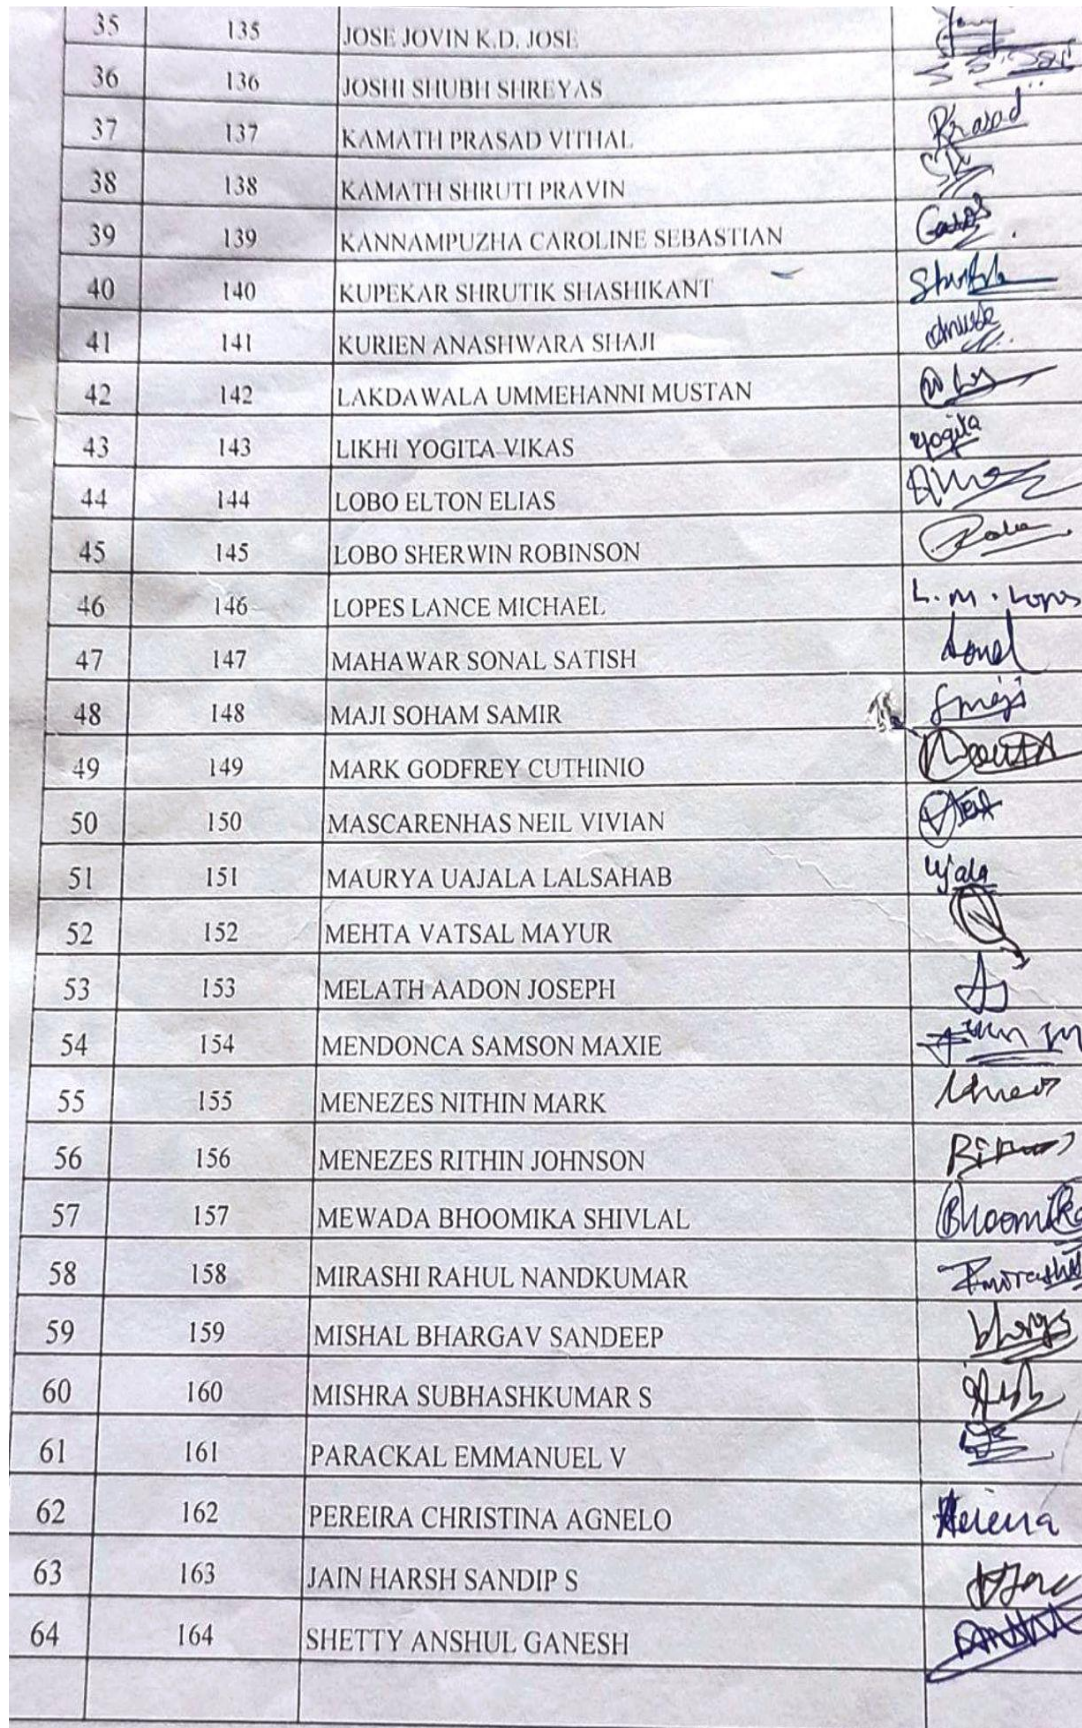 35 135 JOSE JOVIN K.D. JOSE
36 136 JOSHI SHUBH SHREYAS
37 137 KAMATH PRASAD VITHAL Prasad
38 138 KAMATH SHRUTI PRAVIN
39 139 KANNAMPUZHA CAROLINE SEBASTIAN
40 140 KUPEKAR SHRUTIK SHASHIKANT
41 141 KURIEN ANASHWARA SHAJI
42 142 LAKDAWALA UMMEHANNI MUSTAN
43 143 LIKHI YOGITA VIKAS yogita
44 144 LOBO ELTON ELIAS
45 145 LOBO SHERWIN ROBINSON
46 146 LOPES LANCE MICHAEL L.M. Lopes
47 147 MAHAWAR SONAL SATISH Sonal
48 148 MAJI SOHAM SAMIR Smaji
49 149 MARK GODFREY CUTHINIO
50 150 MASCARENHAS NEIL VIVIAN
51 151 MAURYA UAJALA LALSAHAB Ujala
52 152 MEHTA VATSAL MAYUR
53 153 MELATH AADON JOSEPH
54 154 MENDONCA SAMSON MAXIE
55 155 MENEZES NITHIN MARK
56 156 MENEZES RITHIN JOHNSON
57 157 MEWADA BHOOMIKA SHIVLAL Bhoomika
58 158 MIRASHI RAHUL NANDKUMAR Rmirashi
59 159 MISHAL BHARGAV SANDEEP
60 160 MISHRA SUBHASHKUMAR S
61 161 PARACKAL EMMANUEL V
62 162 PEREIRA CHRISTINA AGNELO
63 163 JAIN HARSH SANDIP S
64 164 SHETTY ANSHUL GANESH